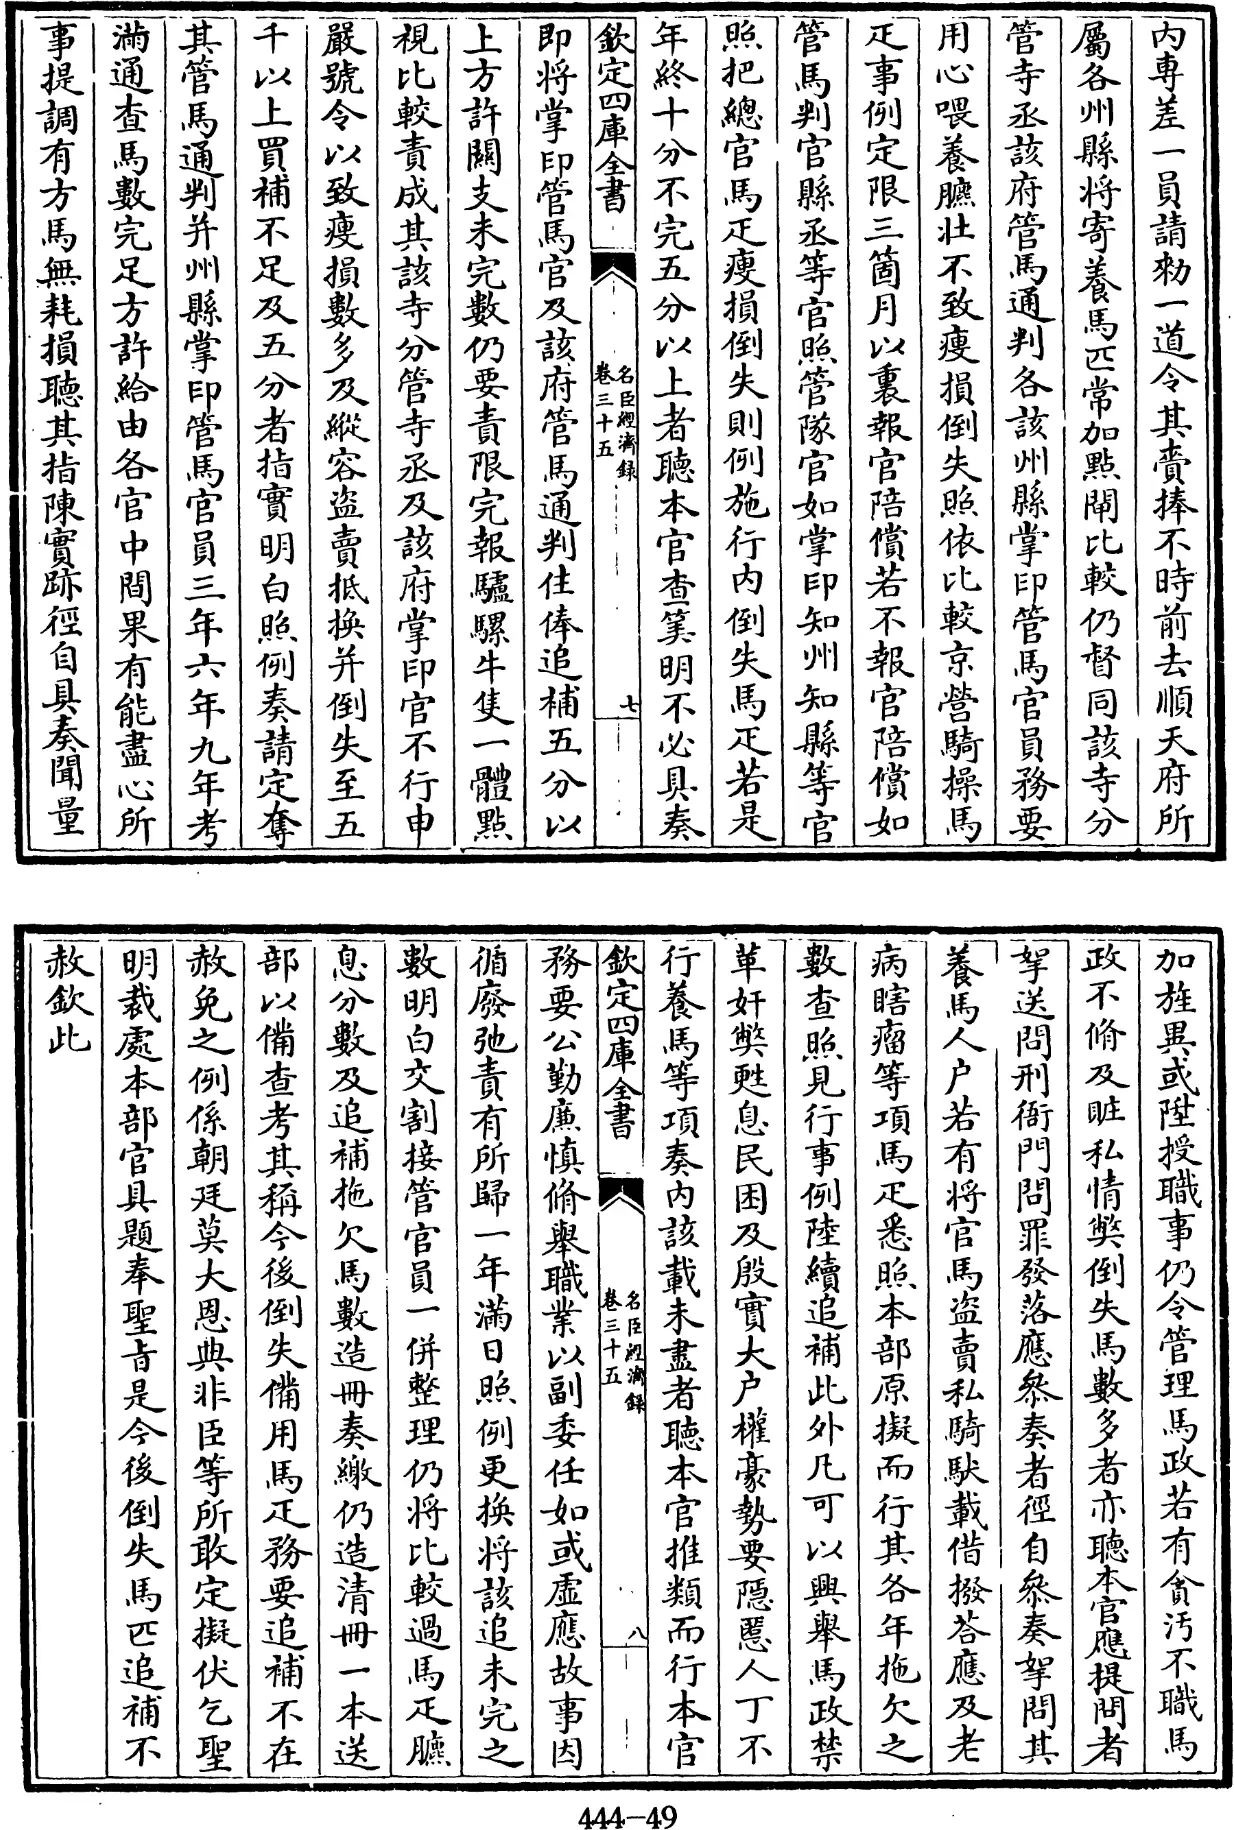 內專差一員請勑一道令其賫捧不時前去順天府所
屬各州縣將寄養馬匹常加點閘比較仍督同該寺分
管寺丞該府管馬通判各該州縣掌印管馬官員務要
用心喂養臕壯不致瘦損倒失照依比較京營騎操馬
疋事例定限三箇月以裏報官陪償若不報官陪償如
管馬判官縣丞等官照管隊官如掌印知州知縣等官
照把總官馬疋瘦損倒失則例施行內倒失馬疋若是
年終十分不完五分以上者聽本官查筭明不必具奏
欽定四庫全書
名臣經濟録
卷三十五
七
即將掌印管馬官及該府管馬通判住俸追補五分以
上方許關支未完數仍要責限完報驢騾牛隻一體點
視比較責成其該寺分管寺丞及該府掌印官不行申
嚴號令以致瘦損數多及縱容盜賣抵換并倒失至五
千以上買補不足及五分者指實明白照例奏請定奪
其管馬通判并州縣掌印管馬官員三年六年九年考
滿通查馬數完足方許給由各官中間果有能盡心所
事提調有方馬無耗損聽其指陳實跡徑自具奏聞量
加旌異或陞授職事仍令管理馬政若有貪汚不職馬
政不脩及賍私情獘倒失馬數多者亦聽本官應提問者
拏送問刑衙門問罪發落應叅奏者徑自叅奏拏問其
養馬人户若有將官馬盜賣私騎馱載借撥荅應及老
病瞎瘤等項馬疋悉照本部原擬而行其各年拖欠之
數查照見行事例陸續追補此外凡可以興舉馬政禁
革奸獘甦息民困及殷實大户權豪勢要隱慝人丁不
行養馬等項奏內該載未盡者聽本官推類而行本官
欽定四庫全書
名臣經濟録
卷三十五
八
務要公勤廉慎脩舉職業以副委任如或虛應故事因
循廢弛責有所歸一年滿日照例更換將該追未完之
數明白交割接管官員一併整理仍將比較過馬疋臕
息分數及追補拖欠馬數造冊奏繳仍造清冊一本送
部以備查考其稱今後倒失備用馬疋務要追補不在
赦免之例係朝廷莫大恩典非臣等所敢定擬伏乞聖
明裁處本部官具題奉聖旨是今後倒失馬匹追補不
赦欽此
444-49